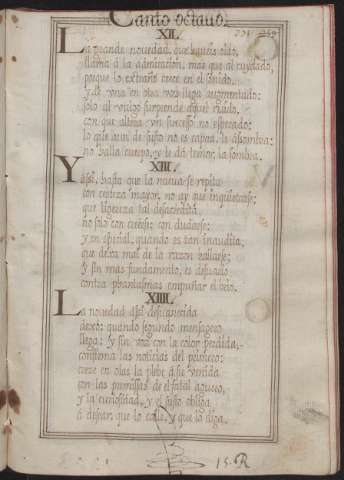 Canto octauo.
XII.
La grande nouedad, que aueis oido,
llama á la admiracion, mas que al cuydado,
porque lo extraño crece en el sonido,
y de vna en otra voz llega augmentado:
solo al vulgo surprende aquel ruido,
con que altera vn sucesso no esperado:
lo que aun de susto no es capaz, le assombra:
no halla cuerpo, y le dá temor, la sombra.
XIII.
Y assi, hasta que la nueua se repita
con certeza mayor, no ay que inquietarse;
que ligereza tal desacredita,
no solo con creerse; con dudarse:
y en especial, quando es tan inaudita,
que dexa mal de la razon hallarse;
y sin mas fundamento, es desuario
contra phantasmas empuñar el brio.
XIIII.
La nouedad assi desuanecida
dexó: quando segundo mensagero
llega: y sin voz con la color perdida,
confirma las noticias del primero:
corre en olas la plebe á su venida
con las premissas de el fatal aguero,
y la curiosidad, y el susto obliga
á desear, que lo calle, y que lo diga.
15. R